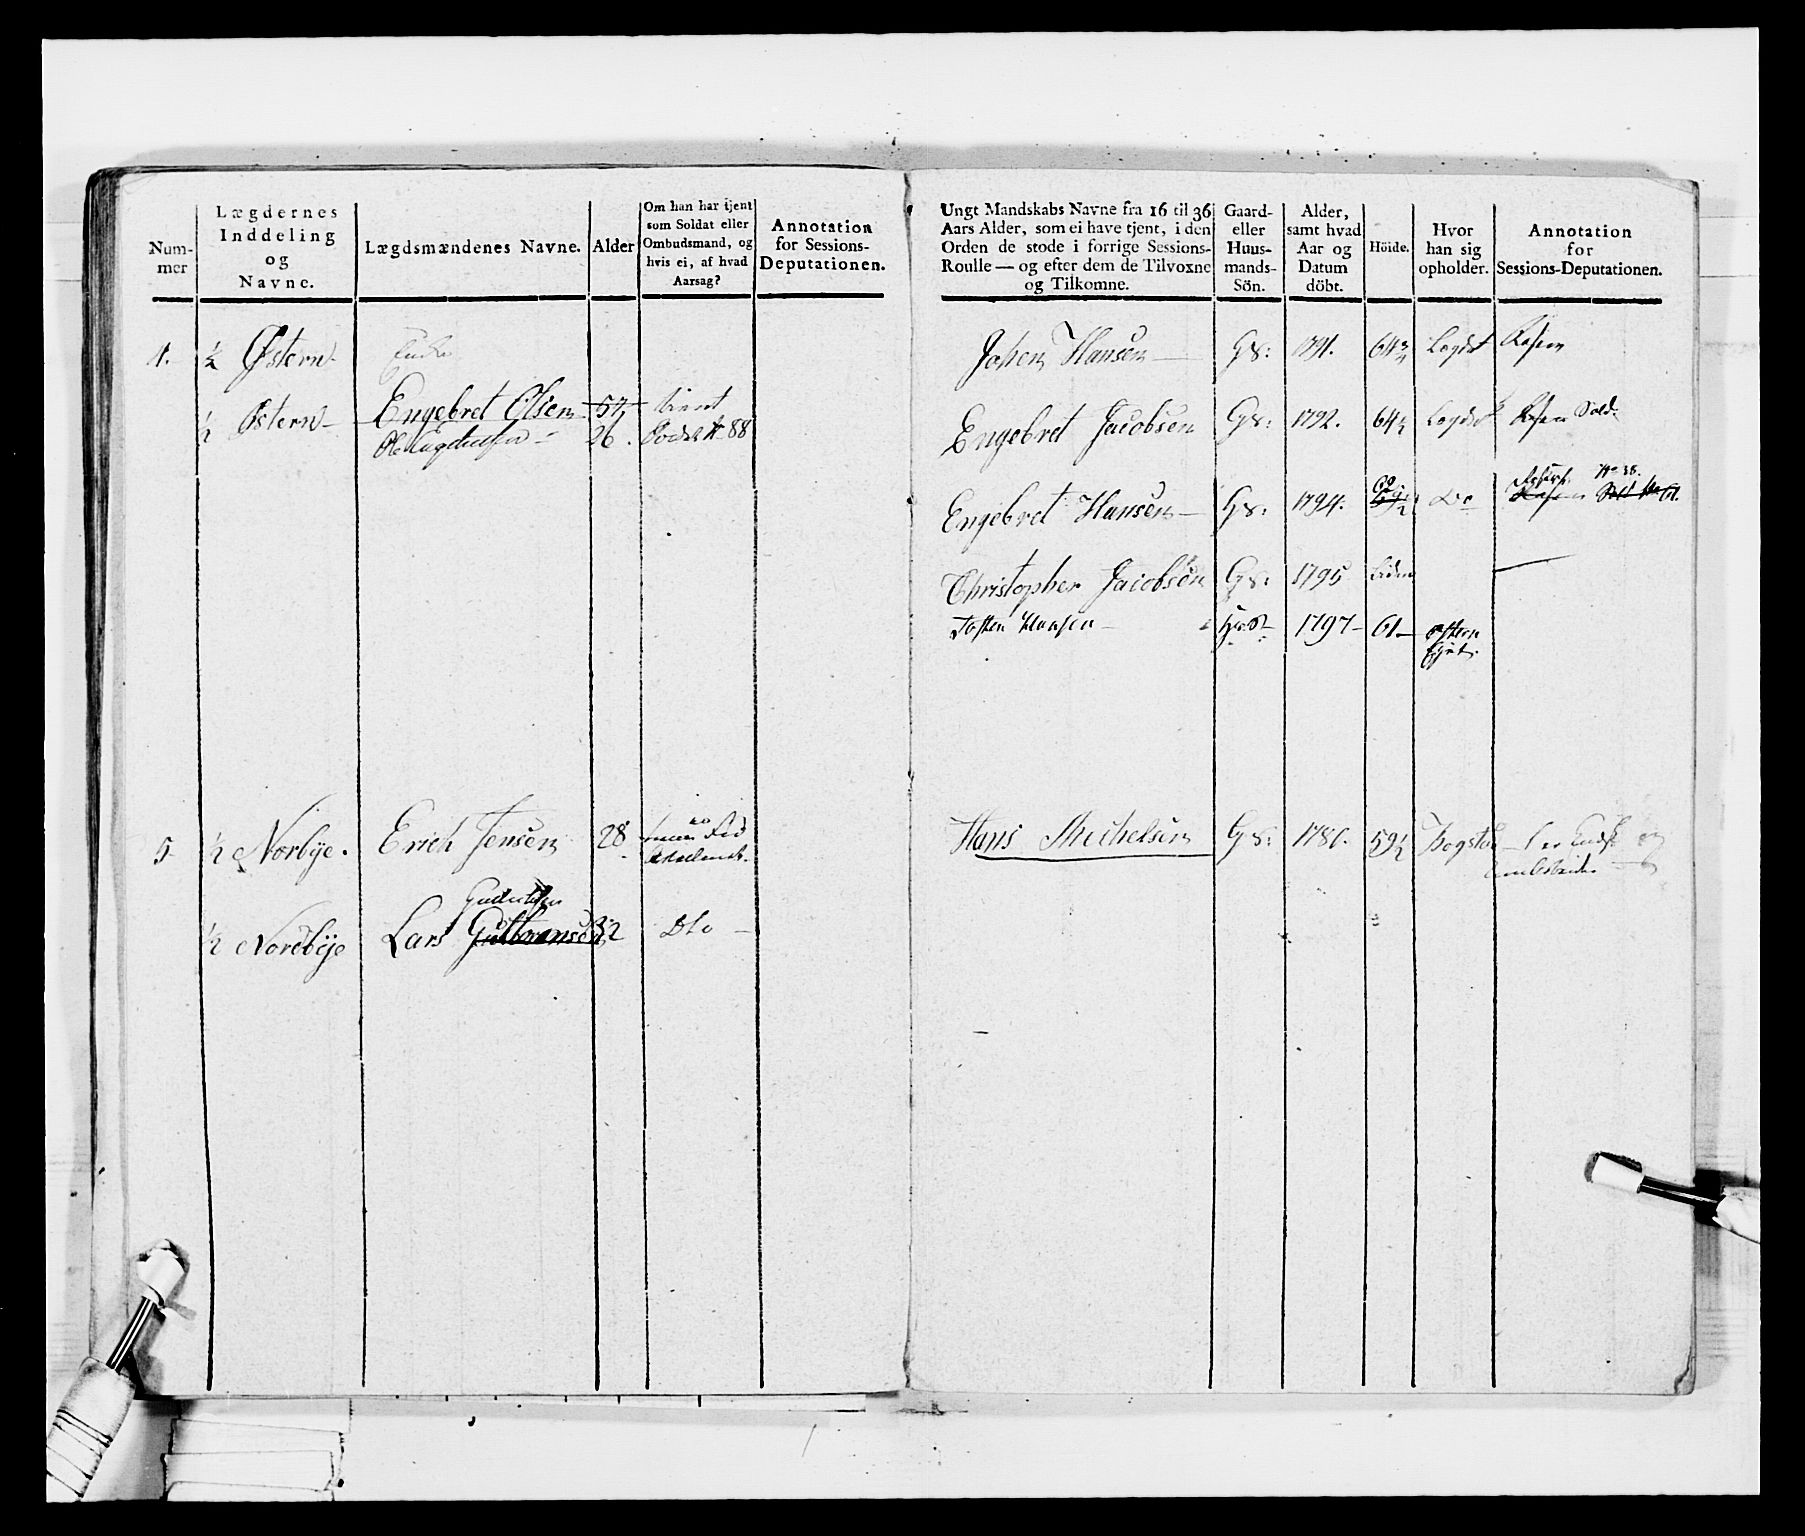 Num-
mer
Lægdernes
Inddeling
og
Navne.
Lægdsmændenes Navne.
Alder
Om han har tjent
som Soldat eller
Ombudsmand, og
hvis ei, af hvad
Aarsag?
Annotation
for Sessions-
Deputationen.
Ungt Mandskabs Navne fra 16 til 36
Aars Alder, som ei have tjent, i den
Orden de stode i forrige Sessions-
Roulle — og efter dem de Tilvoxne
og Tilkomne.
Gaard-
eller
Huus-
mands-
Sön.
Alder,
samt hvad
Aar og
Datum
döbt.
Höide.
Hvor
han sig
opholder.
Annotation
for
Sessions-Deputationen.
4. ½ Østern Enke
½ Østern Engebret Olsen 57 tient
Ole 26. 88
Johen Hansen GS: 1791. 64¾ Legdet
Engebret Jacobsen GS: 1792. 64½ Legdet Sold:
Engebret Hansen GS: 1794. Do No 38.
Christopher Jacobsen GS: 1795 Liden
Tosten Hansen GS 1797 61 Østern
5. ½ Norbye. Erich Jensen 28
½ Nordbye Lars Gulbransen 32 Dto
Hans Michelsen GS: 1786. 59½ Bogstad er og